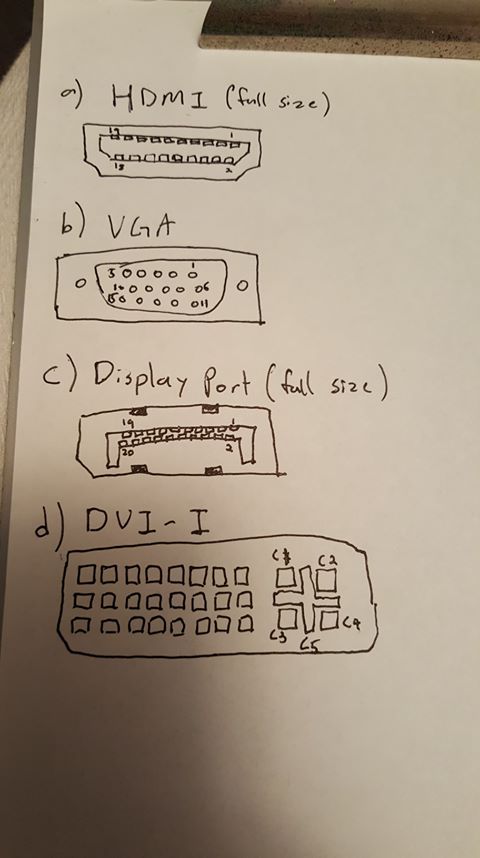 a) HDMI (full size)
19 1
18 2
b) VGA
5 1
10 6
15 11
c) Display Port (full size)
19 1
20 2
d) DVI-I
C1 C2
C3 C5 C4